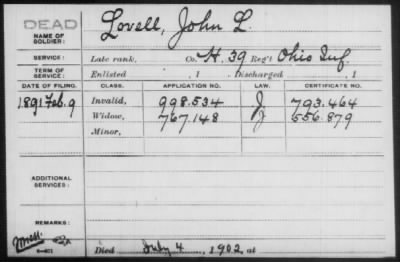 DEAD
NAME OF SOLDIER: Lovell, John L.
SERVICE: Late rank, Co. H, 39 Reg't Ohio Inf.
TERM OF SERVICE: Enlisted , 1 . Discharged , 1
DATE OF FILING. CLASS. APPLICATION NO. LAW. CERTIFICATE NO.
1891 Feb. 9 Invalid, 998.534 J. 793.464
Widow, 767.148 J 556.879
Minor,
ADDITIONAL SERVICES:
REMARKS:
Died July 4, 1902, at
6-401